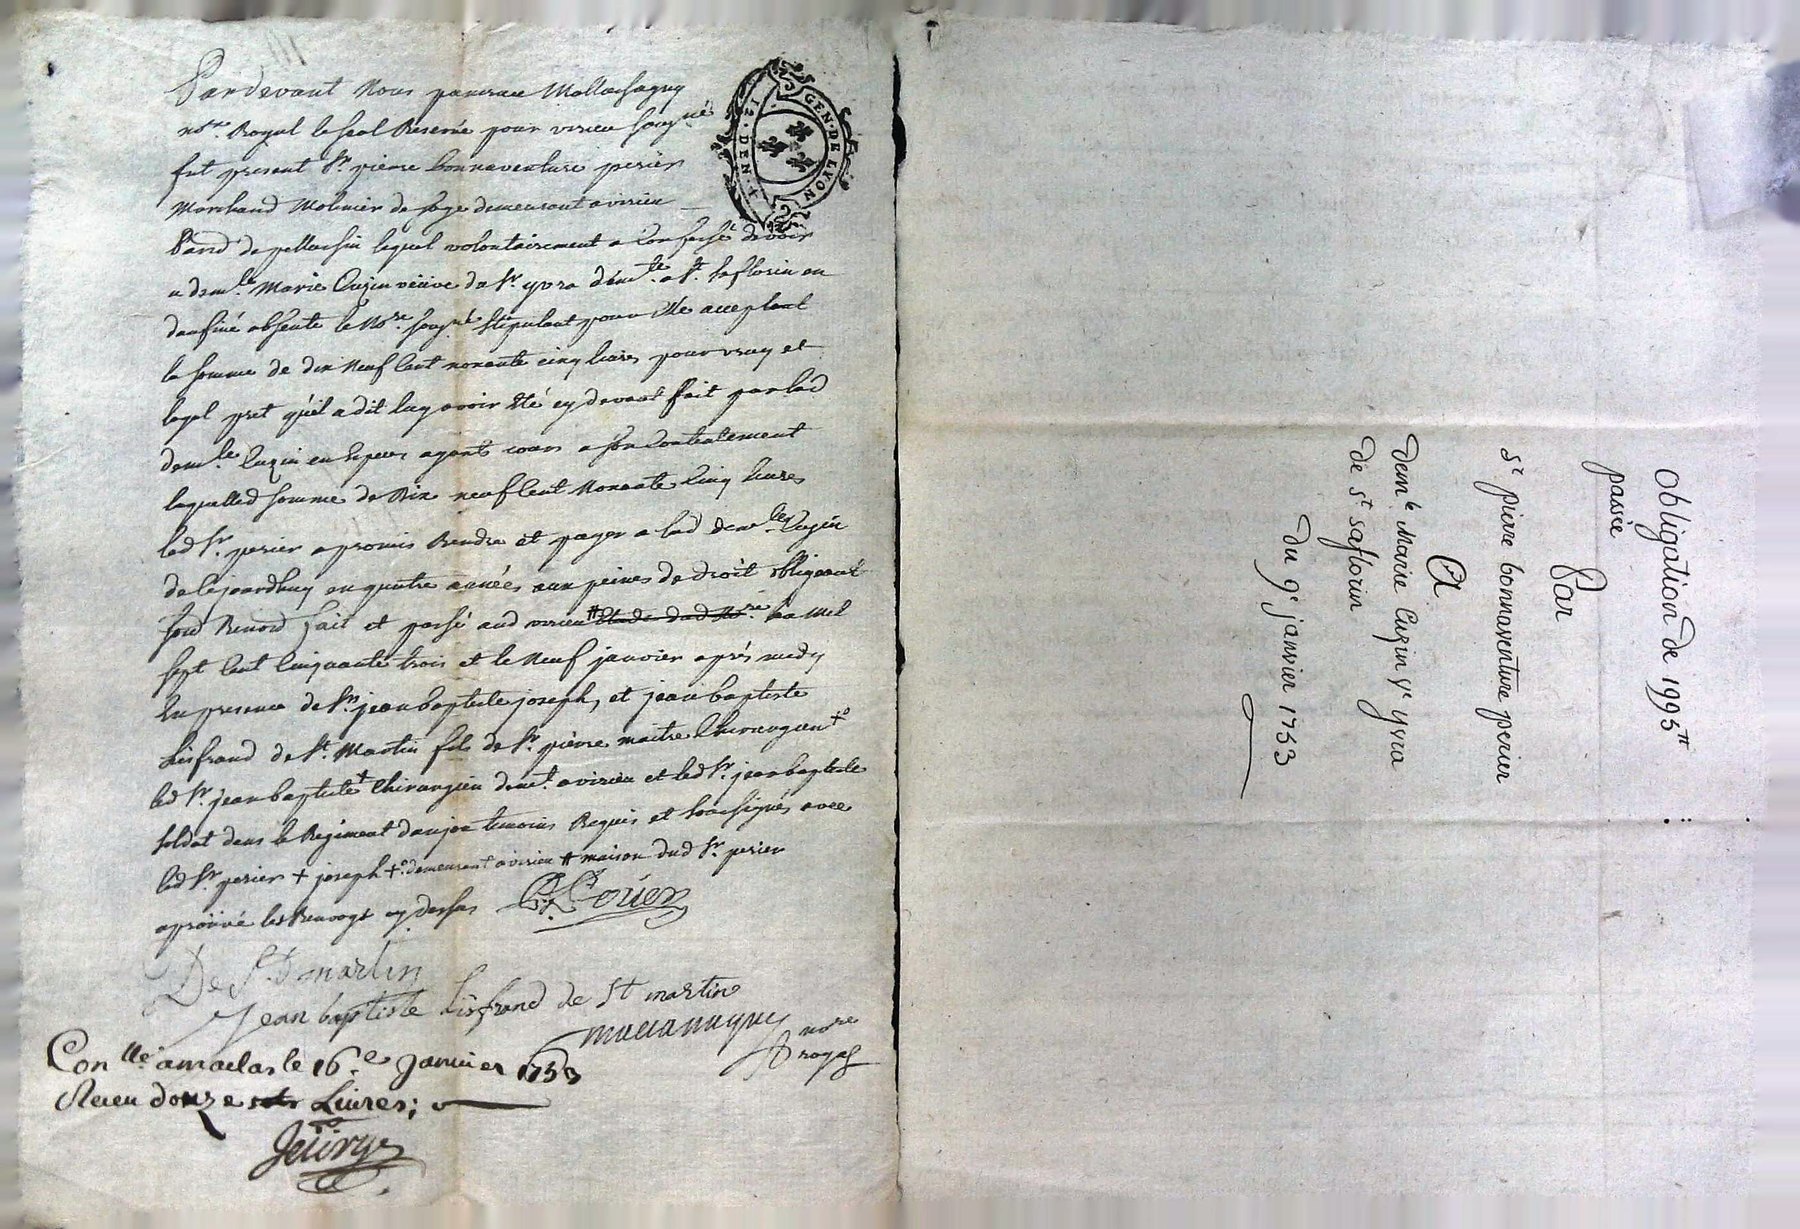 Pardevant Nous
nore. Royal le seel Reservé pour virieu soug.né
fut present Sr. pierre bonnaventure perier
Marchand Molinier de soye demeurant a virieu
lequel volontairement a Confessé devoir
a demlle. Marie Cuzin veüve de Sr. yvra demte. a St. saflorin en
daufiné absente le Nore. sougné stipulant pour elle acceptant
la somme de dix Neuf Cent nonante cinq livres pour vray et
legal pret qu'il a dit luy avoir Eté cy devant fait par lad
demlle. Cuzin en Especes ayants cours a son Contentement
laquelled somme de Dix neuf Cent Nonante Cinq livres
led Sr. perier a promis Rendre et payer a lad demlle. Cuzin
de cejourdhuy en quatre années aux peines de droit obligeant
fait et passé aud virieu # Etude dud Nore. L'an Mil
sept Cent Cinquante trois et le Neuf janvier après midy
En presence de Sr. jean baptiste joseph, et jean baptiste
Lisfrand de St. Martin fils de Sr. pierre maitre Chirurgien +o
led Sr. jean baptiste + Chirurgien demt. a virieu et led Sr. jean baptiste
soldat dans le Regiment danjou temoins Requis et soussignés avec
led Sr. perier + joseph +o demeurant a virieu # maison dud Sr. perier
aprouvé les Renvoys cy dessus
De St. martin
Jean baptiste Lisfrand de St martin
nore
royal
Conlle a maclas le 16.e Janvier 1753
Receu douze sols Livres;
GEN · DE LYON
12 · DEN · T
Obligation de 1995 ₶
passée
Par
Sr pierre bonnaventure perier
A
demlle Marie Cuzin Ve yvra
de St saflorin
du 9e janvier 1753